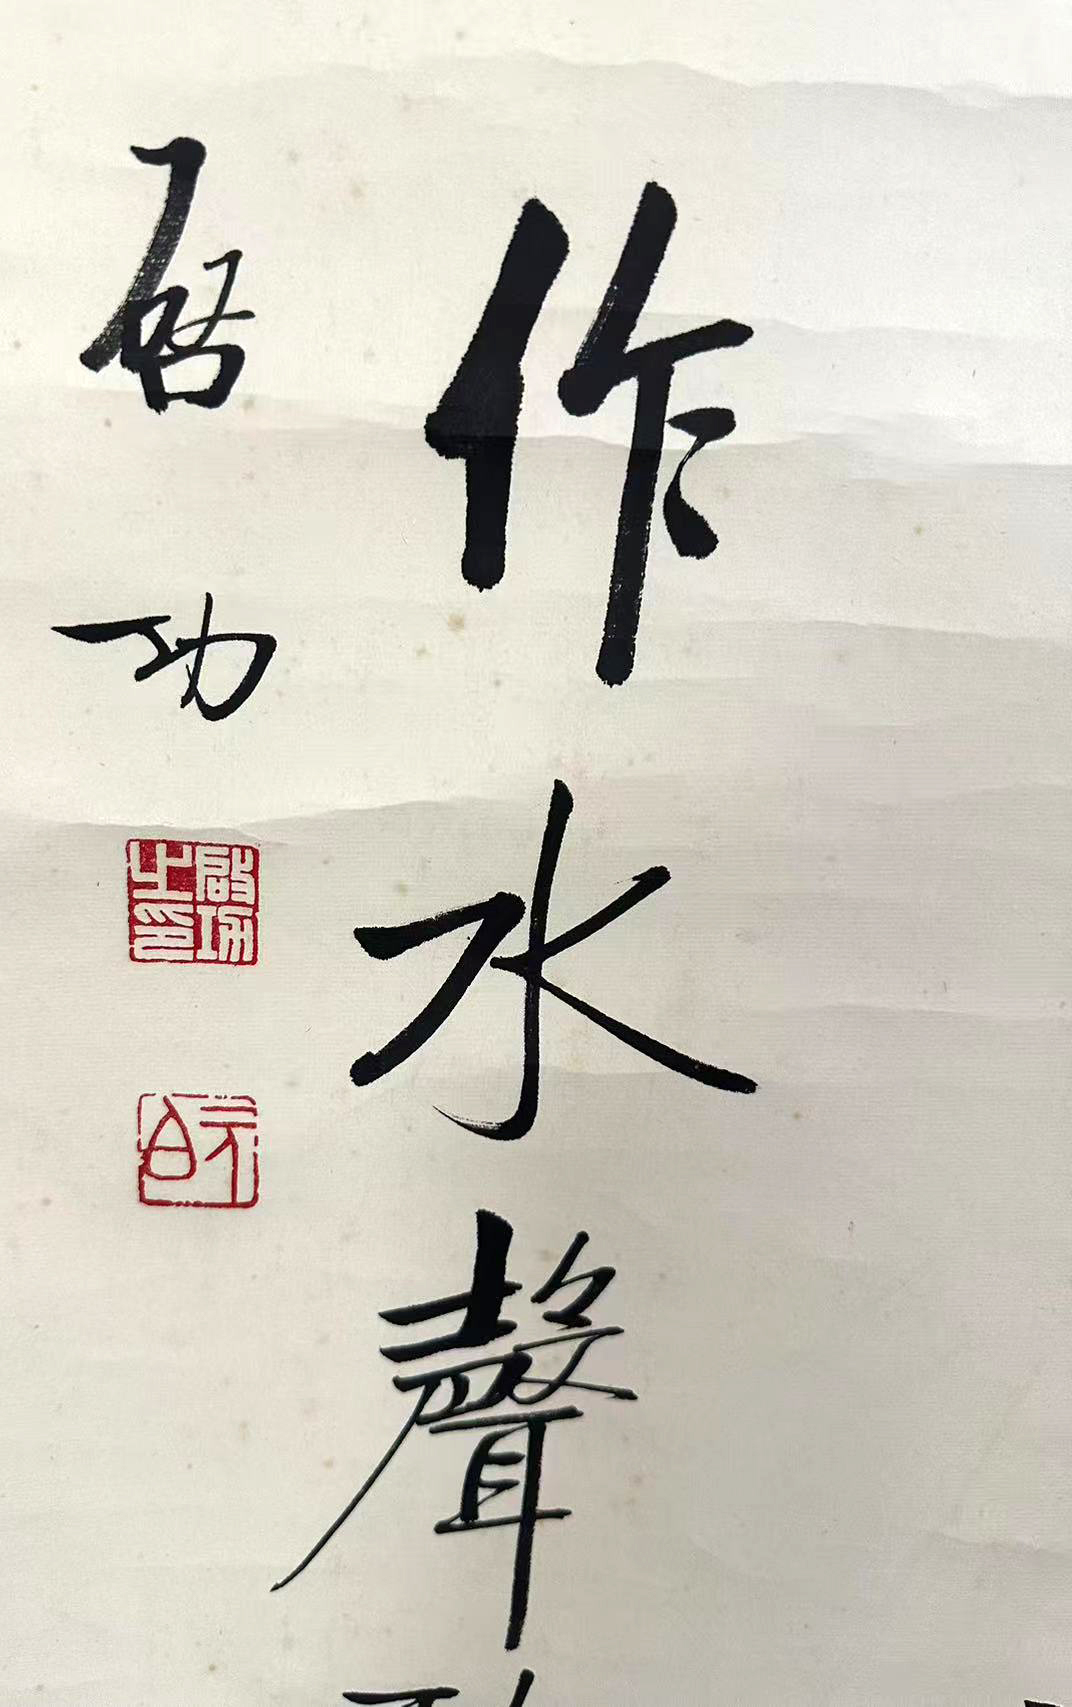 作水聲
啓功
啟功之印
元白